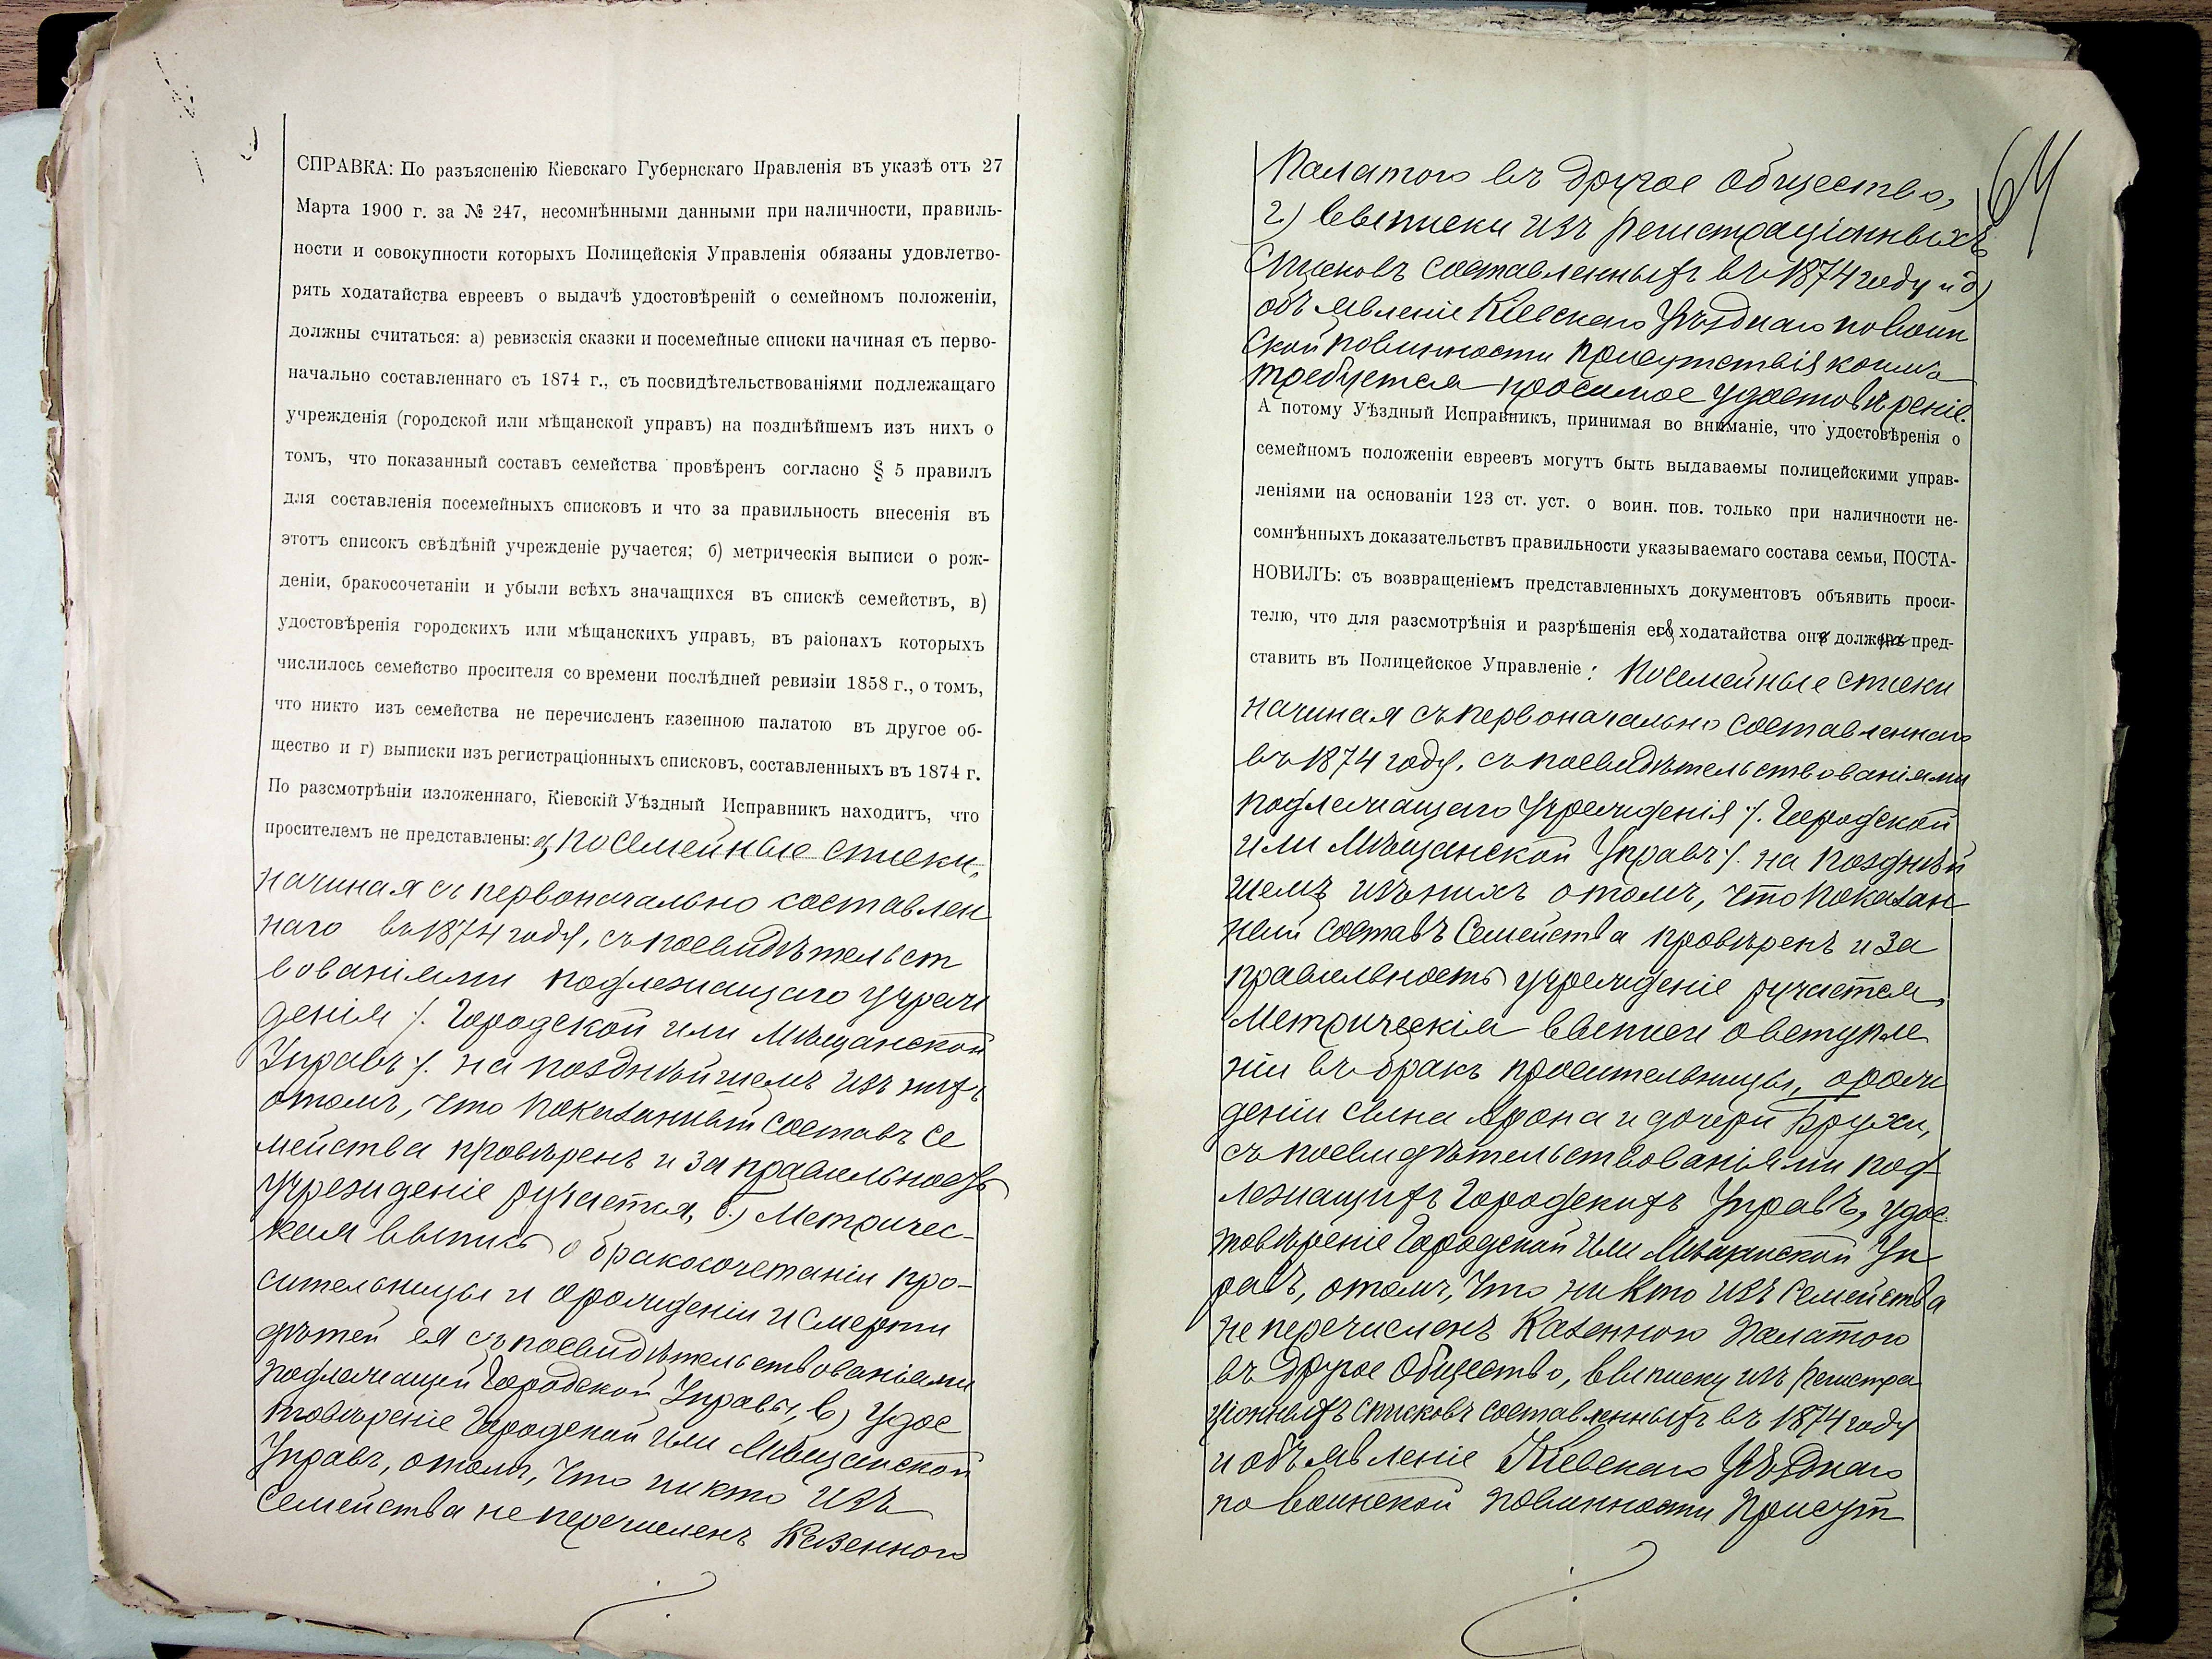 СПРАВКА: По разъясненію Кіевскаго Губернскаго Правленія въ указѣ отъ 27
Марта 1900 г. за № 247, несомнѣнными данными при наличности, правиль-
ности и совокупности которыхъ Полицейскія Управленія обязаны удовлетво-
рять ходатайства евреевъ о выдачѣ удостовѣреній о семейномъ положеніи,
должны считаться: а) ревизскія сказки и посемейные списки начиная съ перво-
начально составленнаго съ 1874 г., съ посвидѣтельствованіями подлежащаго
учрежденія (городской или мѣщанской управъ) на позднѣйшемъ изъ нихъ о
томъ, что показанный составъ семейства провѣренъ согласно § 5 правилъ
для составленія посемейныхъ списковъ и что за правильность внесенія въ
этотъ списокъ свѣдѣній учрежденіе ручается; б) метрическія выписи о рож-
деніи, бракосочетаніи и убыли всѣхъ значащихся въ спискѣ семействъ, в)
удостовѣренія городскихъ или мѣщанскихъ управъ, въ раіонахъ которыхъ
числилось семейство просителя со времени послѣдней ревизіи 1858 г., о томъ,
что никто изъ семейства не перечисленъ казенною палатою въ другое об-
щество и г) выписки изъ регистраціонныхъ списковъ, составленныхъ въ 1874 г.
По разсмотрѣніи изложеннаго, Кіевскій Уѣздный Исправникъ находитъ, что
просителемъ не представлены: а) посемейные списки,
начиная съ первоначально составлен
наго въ 1874 году, съ посвидѣтельст
вованіями подлежащаго учреж
денія /. Городской или Мѣщанской
Управъ /. на позднѣйшемъ изъ нихъ
о томъ, что показанный составъ се
мейства провѣренъ и за правильность
учрежденіе ручается, б.) Метричес-
кая выпись о бракосочетаніи про-
сительницы и о рожденіи и смерти
дѣтей ея съ посвидѣтельствованіями
подлежащей Городской Управы, в) удос
товѣреніе Городской или Мѣщанской
Управъ, о томъ, что никто изъ
семейства не перечисленъ Казенною
64
Палатою въ другое общество,
г) выписки изъ регистраціонныхъ
списковъ составленныхъ въ 1874 году и д)
объявленіе Кіевскаго Уѣзднаго по воин
ской повинности присутствія коимъ
требуется просимое удостовѣреніе.
А потому Уѣздный Исправникъ, принимая во вниманіе, что удостовѣренія о
семейномъ положеніи евреевъ могутъ быть выдаваемы полицейскими управ-
леніями на основаніи 123 ст. уст. о воин. пов. только при наличности не-
сомнѣнныхъ доказательствъ правильности указываемаго состава семьи, ПОСТА-
НОВИЛЪ: съ возвращеніемъ представленныхъ документовъ объявить проси-
телю, что для разсмотрѣнія и разрѣшенія ея ходатайства она должна пред-
ставить въ Полицейское Управленіе: посемейные списки
начиная съ первоначально составленнаго
въ 1874 году, съ посвидѣтельствованіями
подлежащаго учрежденія /. Городской
или Мѣщанской Управъ /. на позднѣй
шемъ изъ нихъ о томъ, что показан
ный составъ семейства провѣренъ и за
правильность учрежденіе ручается,
Метрическія выписи о вступле
ніи въ бракъ просительницы, о рож
деніи сына Арона и дочери Брухи,
съ посвидѣтельствованіями под
лежащихъ Городскихъ Управъ, удос
товѣреніе Городской или Мѣщанской Уп
равъ, о томъ, что никто изъ семейства
не перечисленъ Казенною Палатою
въ другое Общество, выписку изъ регистра
ціонныхъ списковъ составленныхъ въ 1874 году
и объявленіе Кіевскаго Уѣзднаго
по воинской повинности Присут